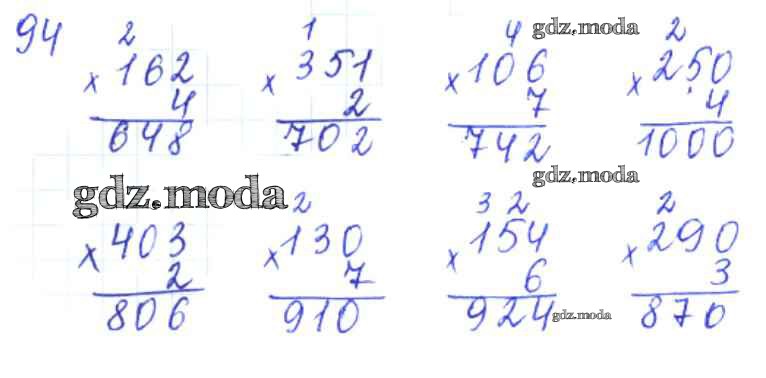 94
gdz.moda
2 1 4 2
× 162 × 351 × 106 × 250
4 2 7 4
648 702 742 1000
gdz.moda gdz.moda
2 3 2 2
× 403 × 130 × 154 × 290
2 7 6 3
806 910 924 870
gdz.moda